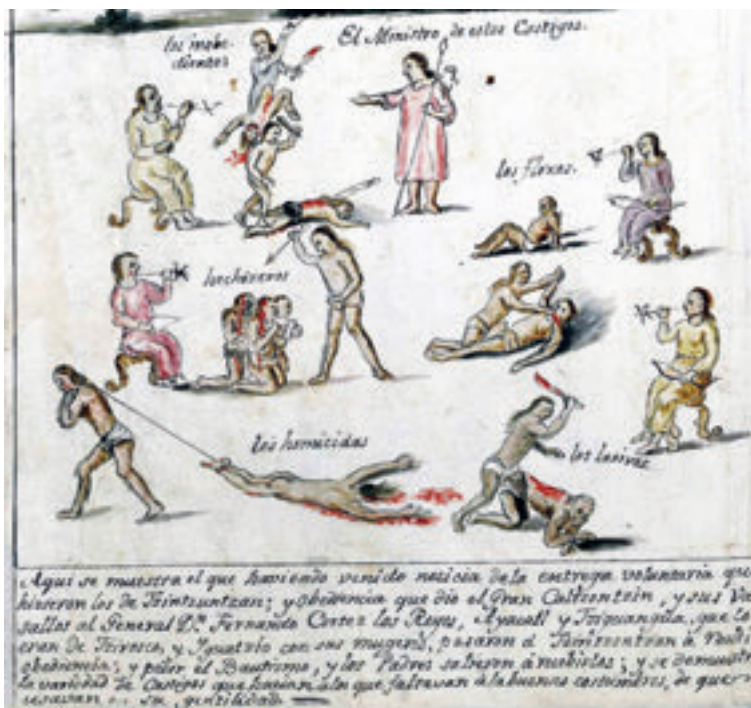 los inobe-
dientes
El Ministro, de estos Castigos.
los floxos.
los homicidas
los lasivos
Aqui se muestra el que haviendo venido noticia de la entrega voluntaria que
hisieron los de Tzintzuntzan; y obediencia que dio el Gran Caltzontzin, y sus Va
sallos al General Dn. Fernando Cortez los Reyes,
eran de y con sus mugeres, pasaron á
obediencia, y pidir el Bautismo, y los Padres salieron á resibirlos; y se demuestra
la variedad de Castigos que hacian á los que faltavan á la buenas costumbres, de que
en su gentilidad